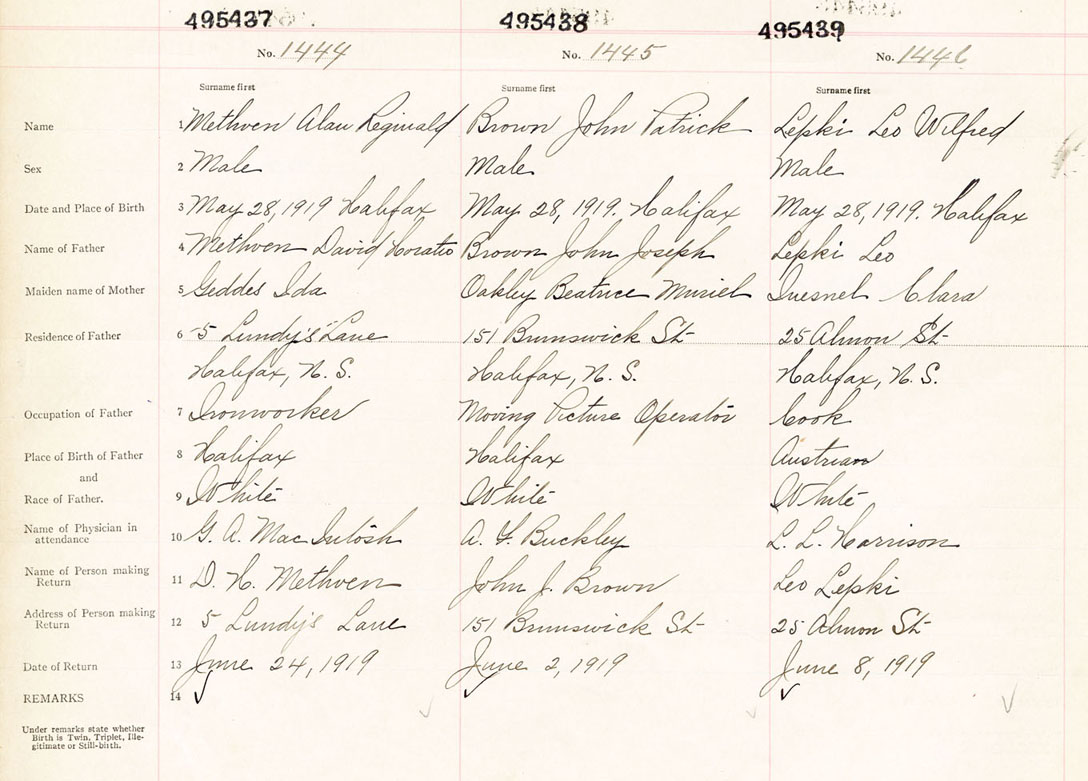 495437 495438 495439
No. 1444 No. 1445 No. 1446
Surname first Surname first Surname first
Name 1 Methven Alan Reginald Brown John Patrick Lepski Leo Wilfred
Sex 2 Male Male Male
Date and Place of Birth 3 May 28, 1919 Halifax May 28, 1919. Halifax May 28, 1919. Halifax
Name of Father 4 Methven David Horatio Brown John Joseph Lepski Leo
Maiden name of Mother 5 Geddes Ida Oakley Beatrice Muriel Quesnel Clara
Residence of Father 6 5 Lundy's Lane 151 Brunswick St 25 Almon St
Halifax, N. S. Halifax, N. S. Halifax, N. S.
Occupation of Father 7 Ironworker Moving Picture Operator Cook
Place of Birth of Father 8 Halifax Halifax Austrian
and
Race of Father. 9 White White White
Name of Physician in
attendance 10 G. A. MacIntosh A. F. Buckley L. L. Harrison
Name of Person making
Return 11 D. H. Methven John J. Brown Leo Lepski
Address of Person making
Return 12 5 Lundy's Lane 151 Brunswick St 25 Almon St
Date of Return 13 June 24, 1919 June 2, 1919 June 8, 1919
REMARKS 14 ✓ ✓ ✓
Under remarks state whether
Birth is Twin, Triplet, Ille-
gitimate or Still-birth.